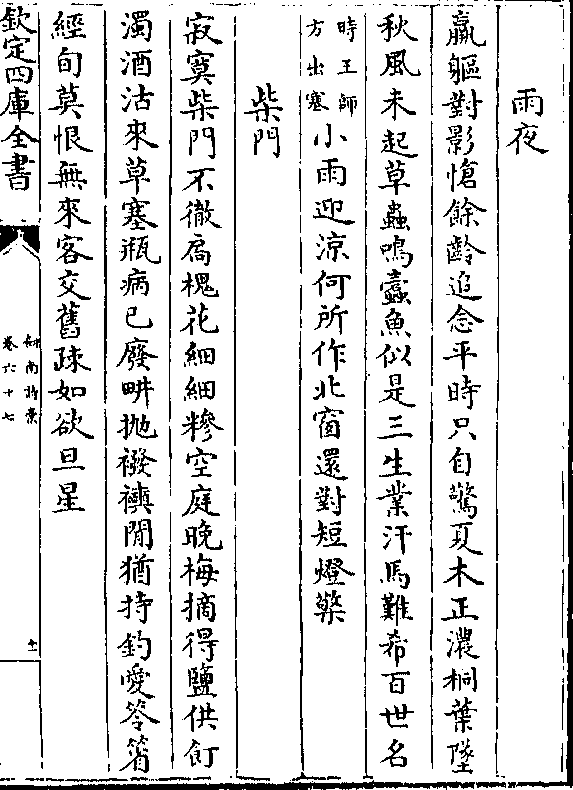 雨夜
羸軀對影愴餘齡追念平時只自驚夏木正濃桐葉墜
秋風未起草蟲鳴蠹魚似是三生業汗馬難希百世名
時王師
方出塞
小雨迎涼何所作北窗還對短燈檠
柴門
寂寞柴門不徹扃槐花細細糝空庭晚梅摘得鹽供飣
濁酒沽來草塞瓶病已廢畊抛襏襫閒猶持釣愛笭箵
經旬莫恨無來客交舊疎如欲旦星
欽定四庫全書
劍南詩藁
卷六十七
十一